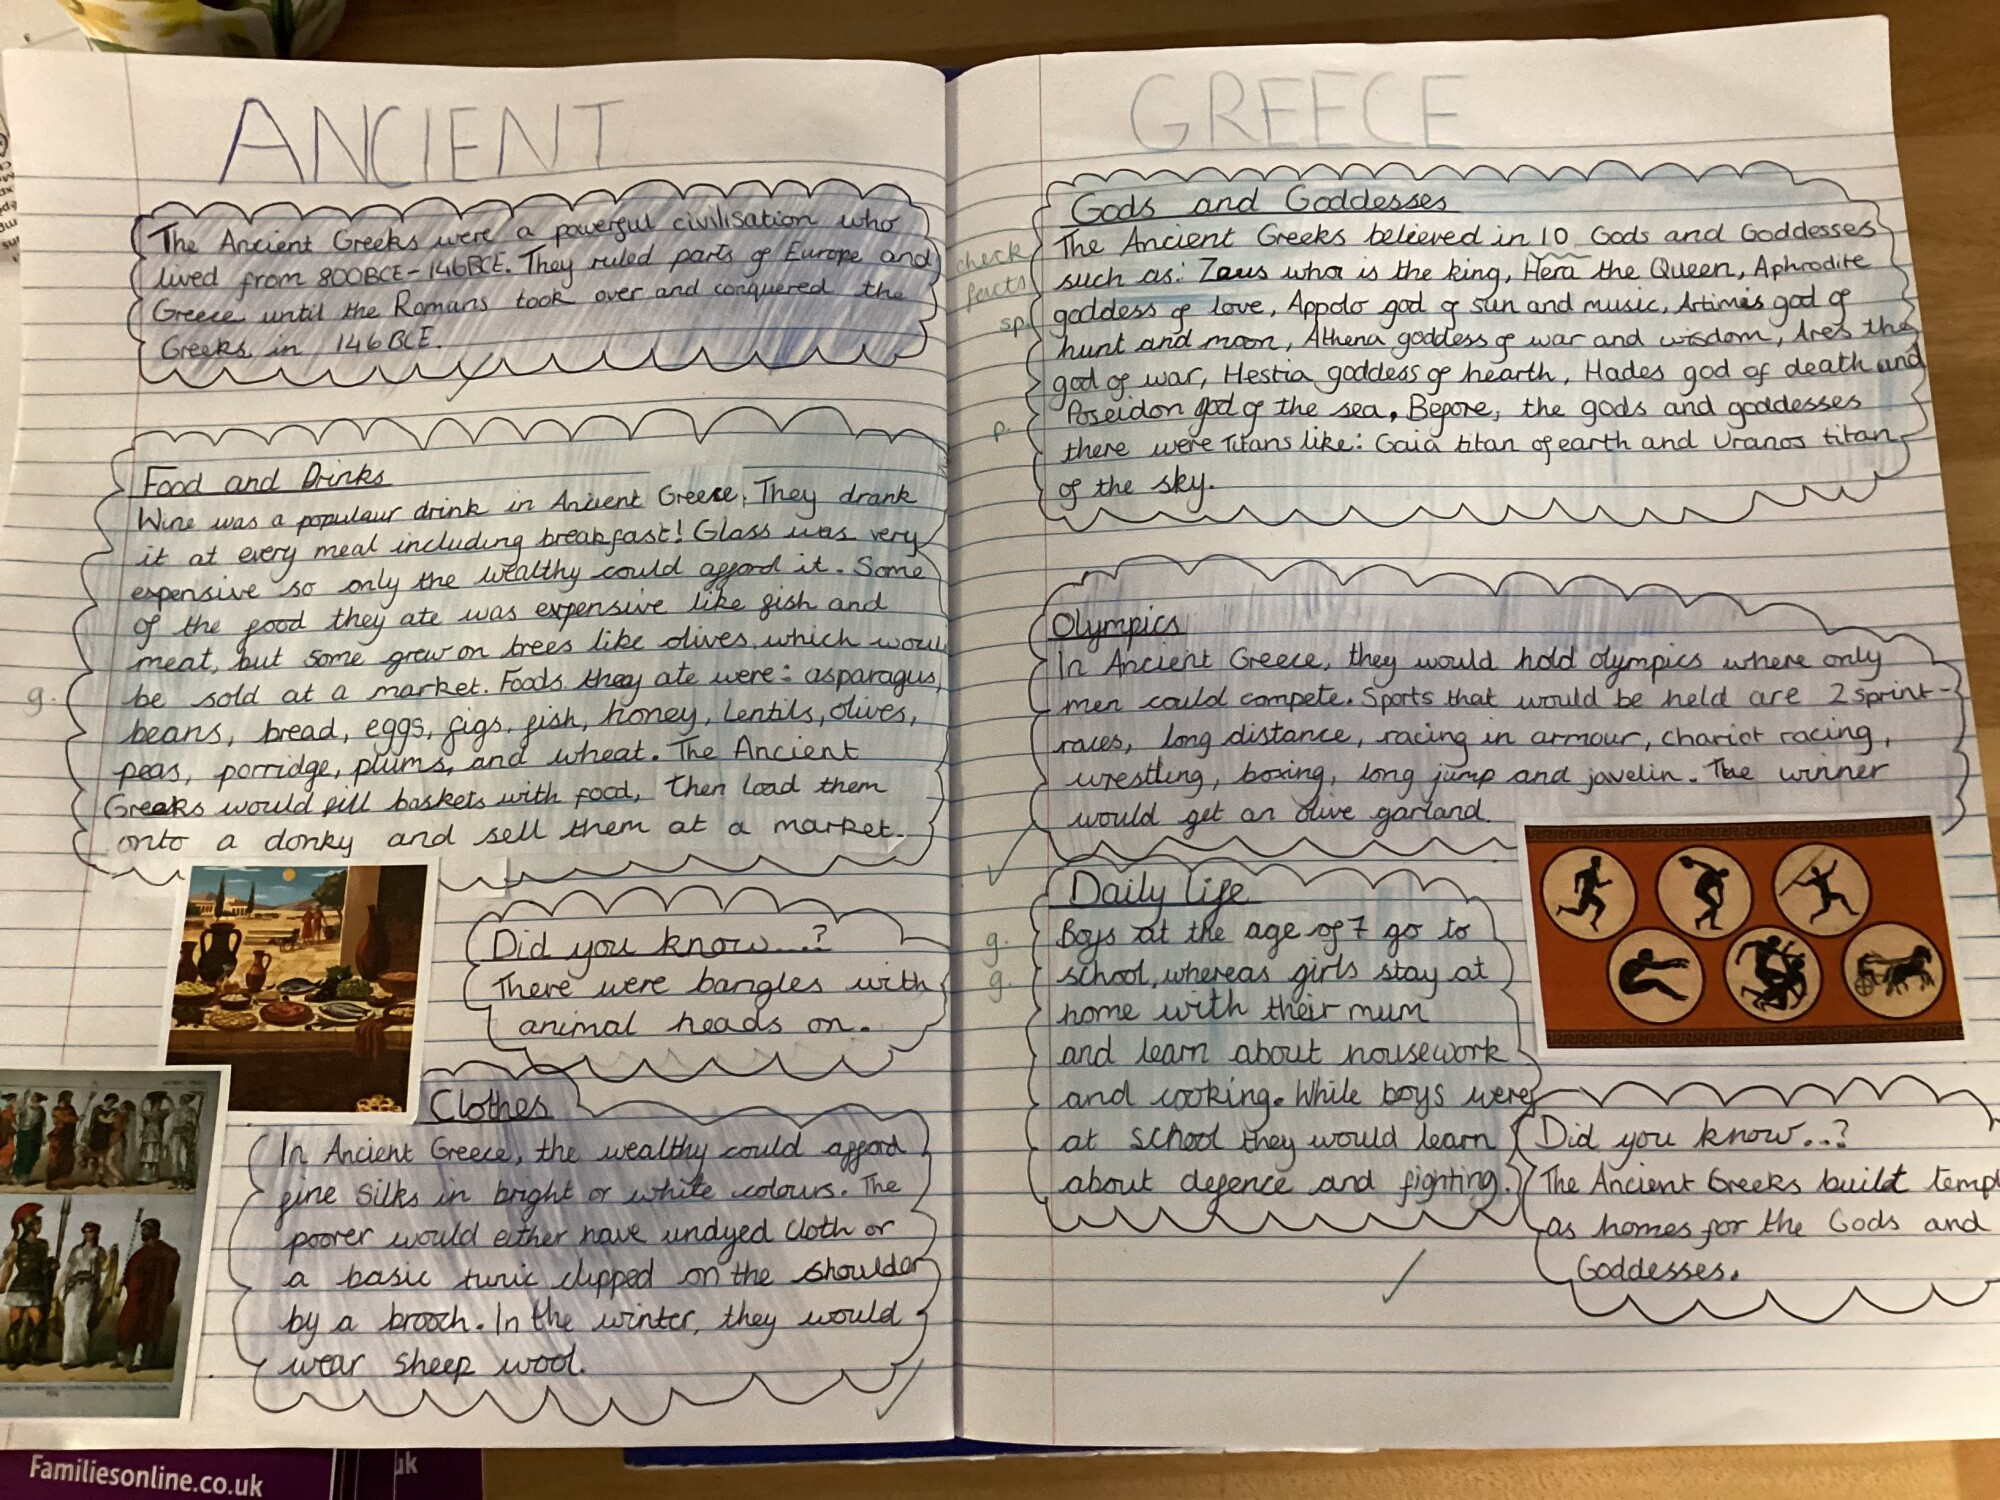 ANCIENT
The Ancient Greeks were a powerful civilisation who
lived from 800BCE-146BCE. They ruled parts of Europe and
Greece until the Romans took over and conquered the
Greeks in 146BCE.
Food and Drinks
Wine was a populaur drink in Ancient Greece. They drank
it at every meal including breakfast! Glass was very
expensive so only the wealthy could afford it. Some
of the food they ate was expensive like fish and
meat, but some grew on trees like olives which woul
be sold at a market. Foods they ate were: asparagus,
g.
beans, bread, eggs, figs, fish, honey, lentils, olives,
peas, porridge, plums, and wheat. The Ancient
Greeks would fill baskets with food, then load them
onto a donky and sell them at a market.
Did you know...?
There were bangles with
animal heads on.
Clothes
In Ancient Greece, the wealthy could afford
fine silks in bright or white colours. The
poorer would either have undyed cloth or
a basic tunic clipped on the shoulder
by a brooch. In the winter, they would
wear sheep wool.
GREECE
Gods and Goddesses
The Ancient Greeks believed in 10 Gods and Goddesses
check
facts
such as: Zeus who is the king, Hera the Queen, Aphrodite
sp.
goddess of love, Appolo god of sun and music, Artimis god of
hunt and moon, Athena goddess of war and wisdom, Ares the
god of war, Hestia goddess of hearth, Hades god of death and
p.
Poseidon god of the sea. Before, the gods and goddesses
there were Titans like: Gaia titan of earth and Uranos titan
of the sky.
Olympics
In Ancient Greece, they would hold olympics where only
men could compete. Sports that would be held are 2 sprint-
races, long distance, racing in armour, chariot racing,
wrestling, boxing, long jump and javelin. The winner
would get an olive garland.
Daily life
g.
Boys at the age of 7 go to
g.
school, whereas girls stay at
home with their mum
and learn about housework
and cooking. While boys were
at school they would learn
about defence and fighting.
Did you know...?
The Ancient Greeks built templ
as homes for the Gods and
Goddesses.
Familiesonline.co.uk
uk